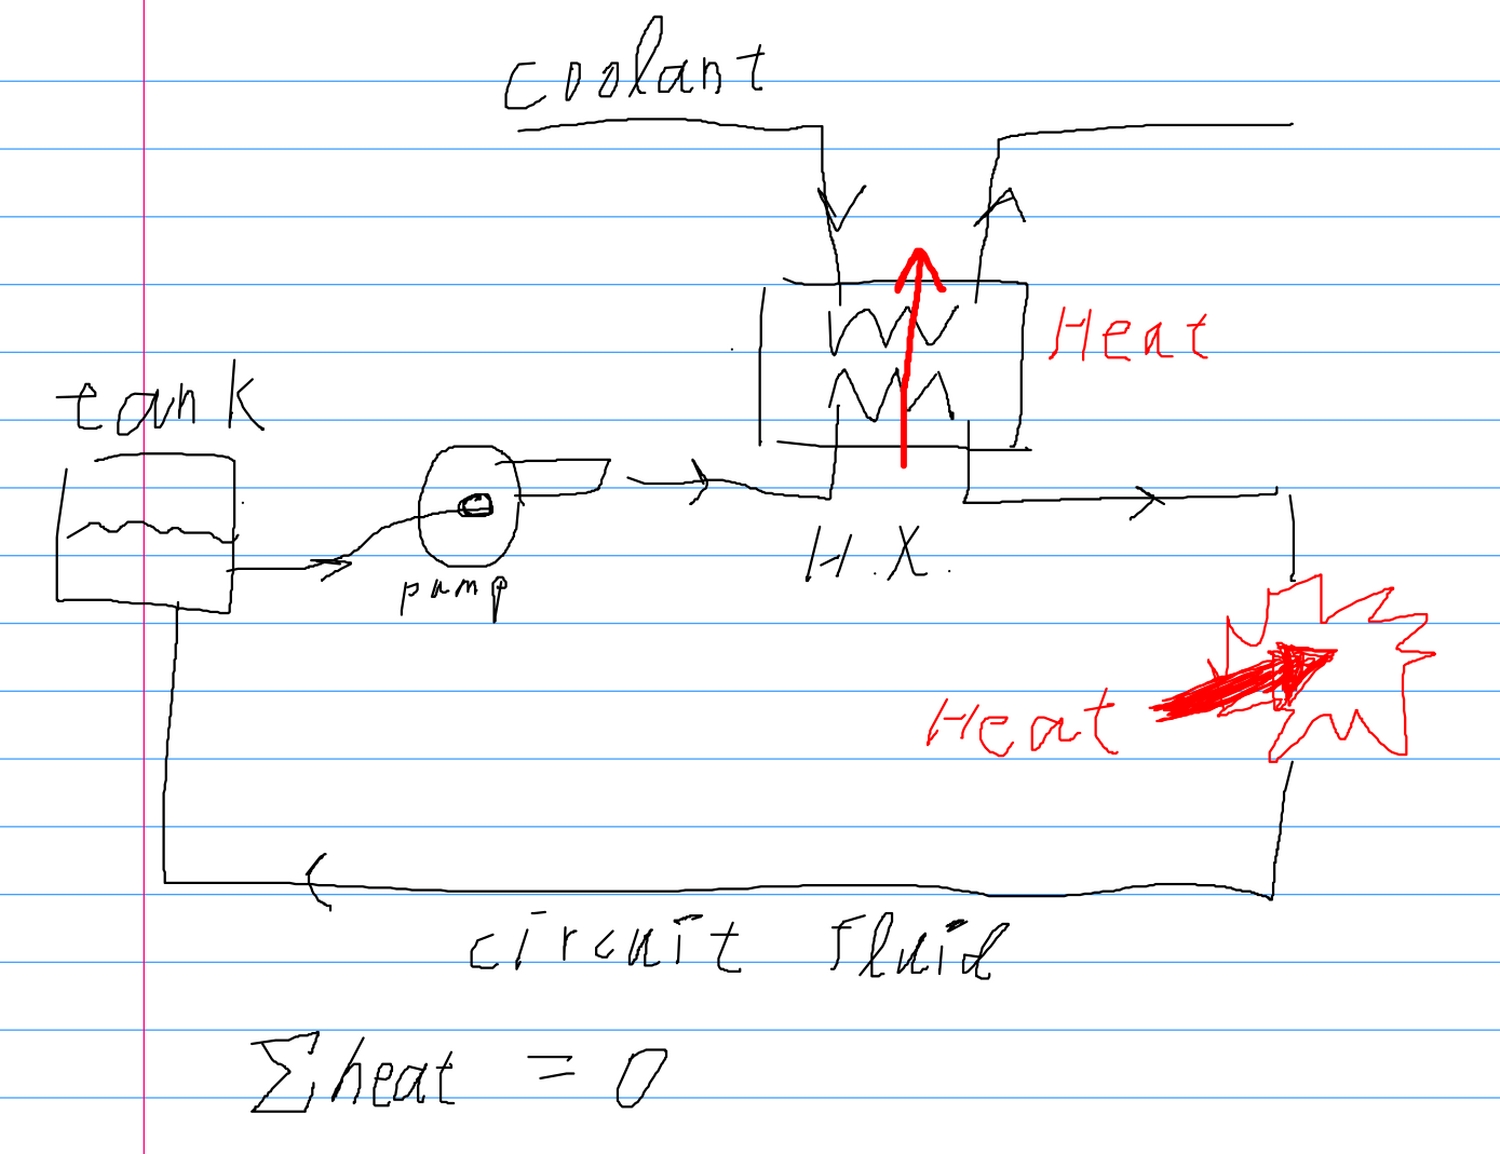 coolant
Heat
tank
pump
H.X.
Heat
circuit fluid
Σheat = 0